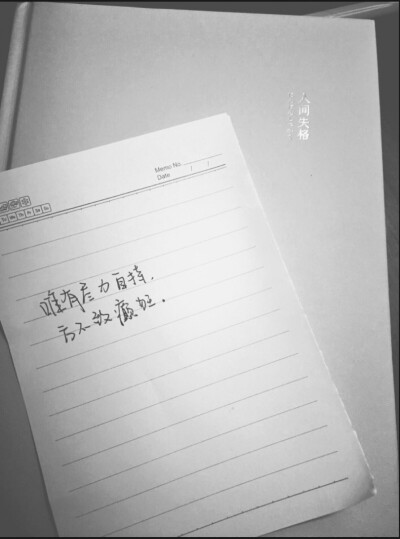 人间失格
Memo No.
Date / /
唯有尽力自持,
方不致癫狂.